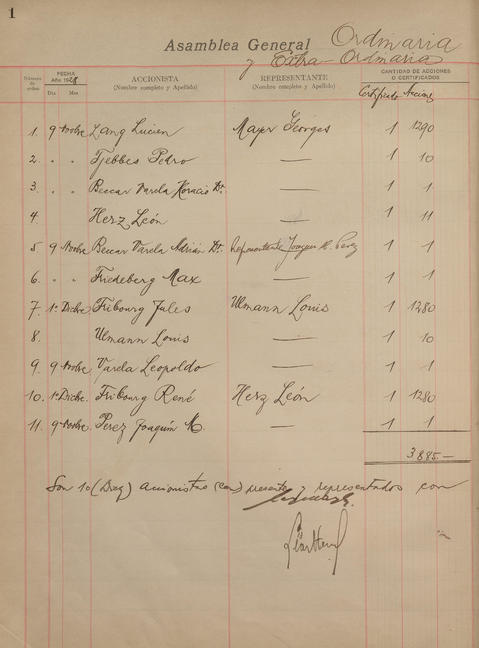 1
Asamblea General Ordinaria
y Extra-Ordinaria
Número de orden FECHA Año 19 Día Mes ACCIONISTA (Nombre completo y Apellido) REPRESENTANTE (Nombre completo y Apellido) CANTIDAD DE ACCIONES O CERTIFICADOS
Certificado Acciones
1. 9 Novbre Lang Lucien Mayer Georges 1 1290
2. " " Tjebbes Pedro — 1 10
3. " " Beccar Varela Horacio Dr. — 1 1
4. Herz León — 1 11
5 9 Novbre Beccar Varela Adrián Dr. Representante Joaquín M. Perez 1 1
6. " " Friedeberg Max — 1 1
7. 1º Dicbre Fribourg Jules Ulmann Louis 1 1280
8. Ulmann Louis — 1 10
9. 9 Novbre Varela Leopoldo — 1 1
10. 1º Dicbre. Fribourg René Herz León 1 1280
11. 9 Novbre Perez Joaquín M. — 1 1
3885.—
Son 10 (Diez) accionistas presentes y representados con